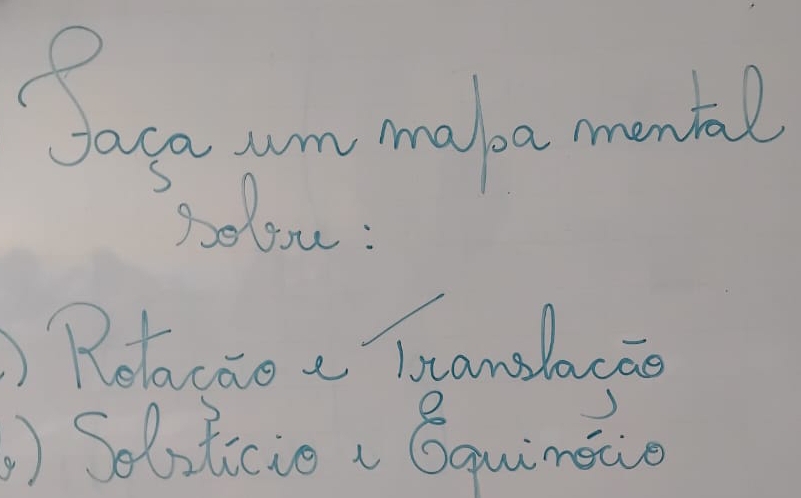 Faça um mapa mental
sobre:
) Rotação e Translação
b) Solstício e Equinócio